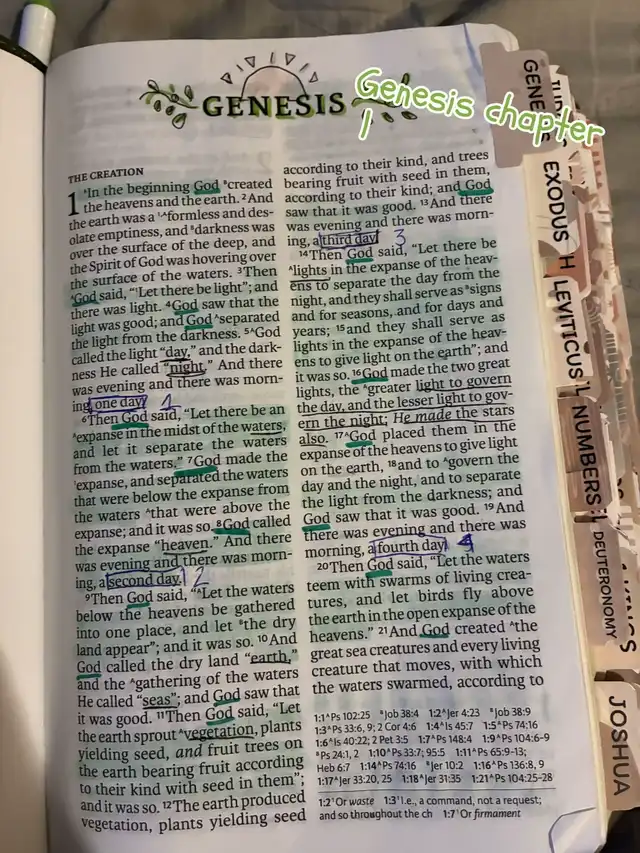 GENESIS
Genesis chapter
1
THE CREATION
1 ᴬIn the beginning God ᴮcreated
the heavens and the earth. ²And
the earth was a ¹,ᴬformless and des-
olate emptiness, and ᴮdarkness was
over the surface of the deep, and
the Spirit of God was hovering over
the surface of the waters. ³Then
ᴬGod said, “¹Let there be light”; and
there was light. ⁴God saw that the
light was good; and God ᴬseparated
the light from the darkness. ⁵ᴬGod
called the light “day,” and the dark-
ness He called “night.” And there
was evening and there was morn-
ing, one day. 1
⁶Then God said, “Let there be an
ᴬexpanse in the midst of the waters,
and let it separate the waters
from the waters.” ⁷God made the
¹expanse, and separated the waters
that were below the expanse from
the waters ᴬthat were above the
expanse; and it was so. ⁸God called
the expanse “heaven.” And there
was evening and there was morn-
ing, a second day. 2
⁹Then God said, “ᴬLet the waters
below the heavens be gathered
into one place, and let ᴮthe dry
land appear”; and it was so. ¹⁰And
God called the dry land “earth,”
and the ᴬgathering of the waters
He called “seas”; and God saw that
it was good. ¹¹Then God said, “Let
the earth sprout ᴬvegetation, plants
yielding seed, and fruit trees on
the earth bearing fruit according
to their kind with seed in them”;
and it was so. ¹²The earth produced
vegetation, plants yielding seed
according to their kind, and trees
bearing fruit with seed in them,
according to their kind; and God
saw that it was good. ¹³And there
was evening and there was morn-
ing, a third day. 3
¹⁴Then God said, “Let there be
ᴬlights in the expanse of the heav-
ens to separate the day from the
night, and they shall serve as ᴮsigns
and for seasons, and for days and
years; ¹⁵and they shall serve as
lights in the expanse of the heav-
ens to give light on the earth”; and
it was so. ¹⁶God made the two great
lights, the ᴬgreater light to govern
the day, and the lesser light to gov-
ern the night; He made the stars
also. ¹⁷ᴬGod placed them in the
expanse of the heavens to give light
on the earth, ¹⁸and to ᴬgovern the
day and the night, and to separate
the light from the darkness; and
God saw that it was good. ¹⁹And
there was evening and there was
morning, a fourth day. 4
²⁰Then God said, “Let the waters
teem with swarms of living crea-
tures, and let birds fly above
the earth in the open expanse of the
heavens.” ²¹And God created ᴬthe
great sea creatures and every living
creature that moves, with which
the waters swarmed, according to
1:1 ᴬPs 102:25 ᴮJob 38:4 1:2 ᴬJer 4:23 ᴮJob 38:9
1:3 ᴬPs 33:6, 9; 2 Cor 4:6 1:4 ᴬIs 45:7 1:5 ᴬPs 74:16
1:6 ᴬIs 40:22; 2 Pet 3:5 1:7 ᴬPs 148:4 1:9 ᴬPs 104:6-9
ᴮPs 24:1, 2 1:10 ᴬPs 33:7; 95:5 1:11 ᴬPs 65:9-13;
Heb 6:7 1:14 ᴬPs 74:16 ᴮJer 10:2 1:16 ᴬPs 136:8, 9
1:17 ᴬJer 33:20, 25 1:18 ᴬJer 31:35 1:21 ᴬPs 104:25-28
1:2 ¹Or waste 1:3 ¹I.e., a command, not a request;
and so throughout the ch 1:7 ¹Or firmament
EXODUS
LEVITICUS
NUMBERS
DEUTERONOMY
JOSHUA